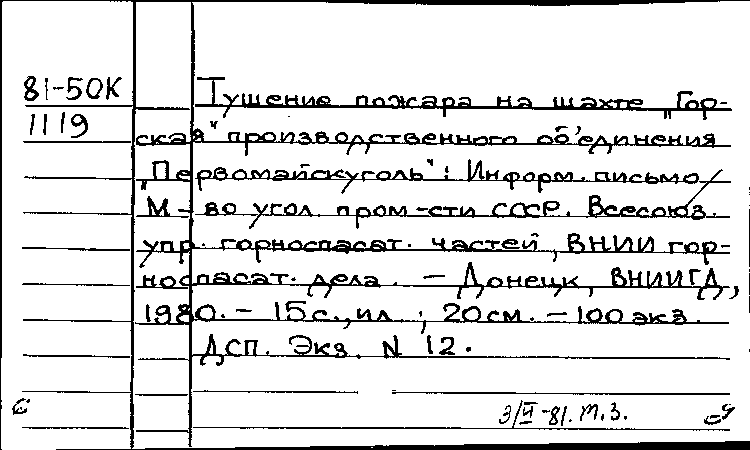 81-50К
1119
Тушение пожара на шахте „Гор-
ская" производственного об'единения
„Первомайскуголь": Информ. письмо/
М-во угол. пром-сти СССР. Всесоюз.
упр. горноспасат. частей, ВНИИ гор-
носпасат. дела. – Донецк, ВНИИГД,
1980. – 15 с., ил.; 20 см. – 100 экз.
ДСП. Экз. N 12.
3/VI-81. т.3.